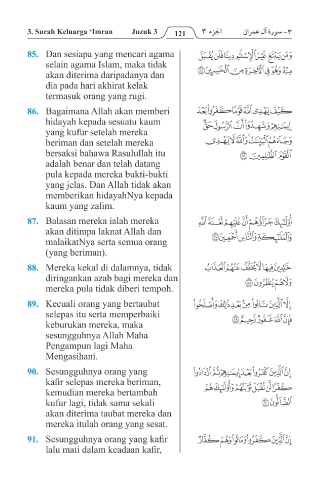 3. Surah Keluarga ‘Imran Juzuk 3 121 الجزء ٣ ٣- سورة آل عمران
85. Dan sesiapa yang mencari agama
selain agama Islam, maka tidak
akan diterima daripadanya dan
dia pada hari akhirat kelak
termasuk orang yang rugi.
وَمَن يَبْتَغِ غَيْرَ ٱلْإِسْلَٰمِ دِينًا فَلَن يُقْبَلَ
مِنْهُ وَهُوَ فِى ٱلْءَاخِرَةِ مِنَ ٱلْخَٰسِرِينَ ۝٨٥
86. Bagaimana Allah akan memberi
hidayah kepada sesuatu kaum
yang kufur setelah mereka
beriman dan setelah mereka
bersaksi bahawa Rasulullah itu
adalah benar dan telah datang
pula kepada mereka bukti-bukti
yang jelas. Dan Allah tidak akan
memberikan hidayahNya kepada
kaum yang zalim.
كَيْفَ يَهْدِى ٱللَّهُ قَوْمًا كَفَرُوا۟ بَعْدَ
إِيمَٰنِهِمْ وَشَهِدُوٓا۟ أَنَّ ٱلرَّسُولَ حَقٌّ
وَجَآءَهُمُ ٱلْبَيِّنَٰتُ وَٱللَّهُ لَا يَهْدِى
ٱلْقَوْمَ ٱلظَّٰلِمِينَ ۝٨٦
87. Balasan mereka ialah mereka
akan ditimpa laknat Allah dan
malaikatNya serta semua orang
(yang beriman).
أُو۟لَٰٓئِكَ جَزَآؤُهُمْ أَنَّ عَلَيْهِمْ لَعْنَةَ ٱللَّهِ
وَٱلْمَلَٰٓئِكَةِ وَٱلنَّاسِ أَجْمَعِينَ ۝٨٧
88. Mereka kekal di dalamnya, tidak
diringankan azab bagi mereka dan
mereka pula tidak diberi tempoh.
خَٰلِدِينَ فِيهَا لَا يُخَفَّفُ عَنْهُمُ ٱلْعَذَابُ
وَلَا هُمْ يُنظَرُونَ ۝٨٨
89. Kecuali orang yang bertaubat
selepas itu serta memperbaiki
keburukan mereka, maka
sesungguhnya Allah Maha
Pengampun lagi Maha
Mengasihani.
إِلَّا ٱلَّذِينَ تَابُوا۟ مِنۢ بَعْدِ ذَٰلِكَ وَأَصْلَحُوا۟
فَإِنَّ ٱللَّهَ غَفُورٌ رَّحِيمٌ ۝٨٩
90. Sesungguhnya orang yang
kafir selepas mereka beriman,
kemudian mereka bertambah
kufur lagi, tidak sama sekali
akan diterima taubat mereka dan
mereka itulah orang yang sesat.
إِنَّ ٱلَّذِينَ كَفَرُوا۟ بَعْدَ إِيمَٰنِهِمْ ثُمَّ ٱزْدَادُوا۟
كُفْرًا لَّن تُقْبَلَ تَوْبَتُهُمْ وَأُو۟لَٰٓئِكَ هُمُ
ٱلضَّآلُّونَ ۝٩٠
91. Sesungguhnya orang yang kafir
lalu mati dalam keadaan kafir,
إِنَّ ٱلَّذِينَ كَفَرُوا۟ وَمَاتُوا۟ وَهُمْ كُفَّارٌ